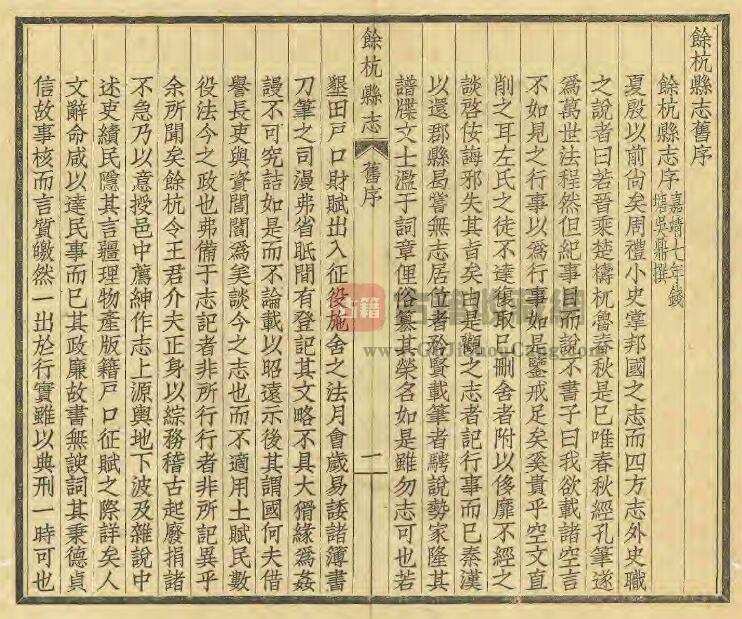 餘杭縣志舊序
餘杭縣志序
嘉靖七年錢
塘吳鼎撰
夏殷以前尙矣周禮小史掌邦國之志而四方志外史職
之說者曰若晉乘楚檮杌魯春秋是巳唯春秋經孔筆遂
爲萬世法程然但紀事目而說不書子曰我欲載諸空言
不如見之行事以爲行事如是鑒戒足矣奚貴乎空文直
削之耳左氏之徒不達復取巳刪舍者附以侈靡不經之
談啓佞誨邪失其旨矣由是觀之志者記行事而巳秦漢
以還郡縣曷嘗無志居位者矜賢載筆者騁說勢家隆其
譜牒文士濫于詞章俚俗纂其榮名如是雖勿志可也若
餘杭縣志
舊序
二
墾田戸口財賦出入征役施舍之法月會歲易諉諸簿書
刀筆之司漫弗省眂間有登記其文略不具大猾緣爲姦
謾不可究詰如是而不論載以昭遠示後其謂國何夫借
譽長吏與資閭閻爲美談今之志也而不適用土賦民數
役法今之政也弗備于志記者非所行行者非所記異乎
余所聞矣餘杭令王君介夫正身以綜務稽古起廢捐諸
不急乃以意授邑中薦紳作志上源輿地下波及雜說中
述吏績民隱其言疆理物產版籍戸口征賦之際詳矣人
文辭命咸以達民事而巳其政廉故書無諛詞其秉德貞
信故事核而言質皦然一出於行實雖以典刑一時可也
古籍
www.GuJiShouCang.com